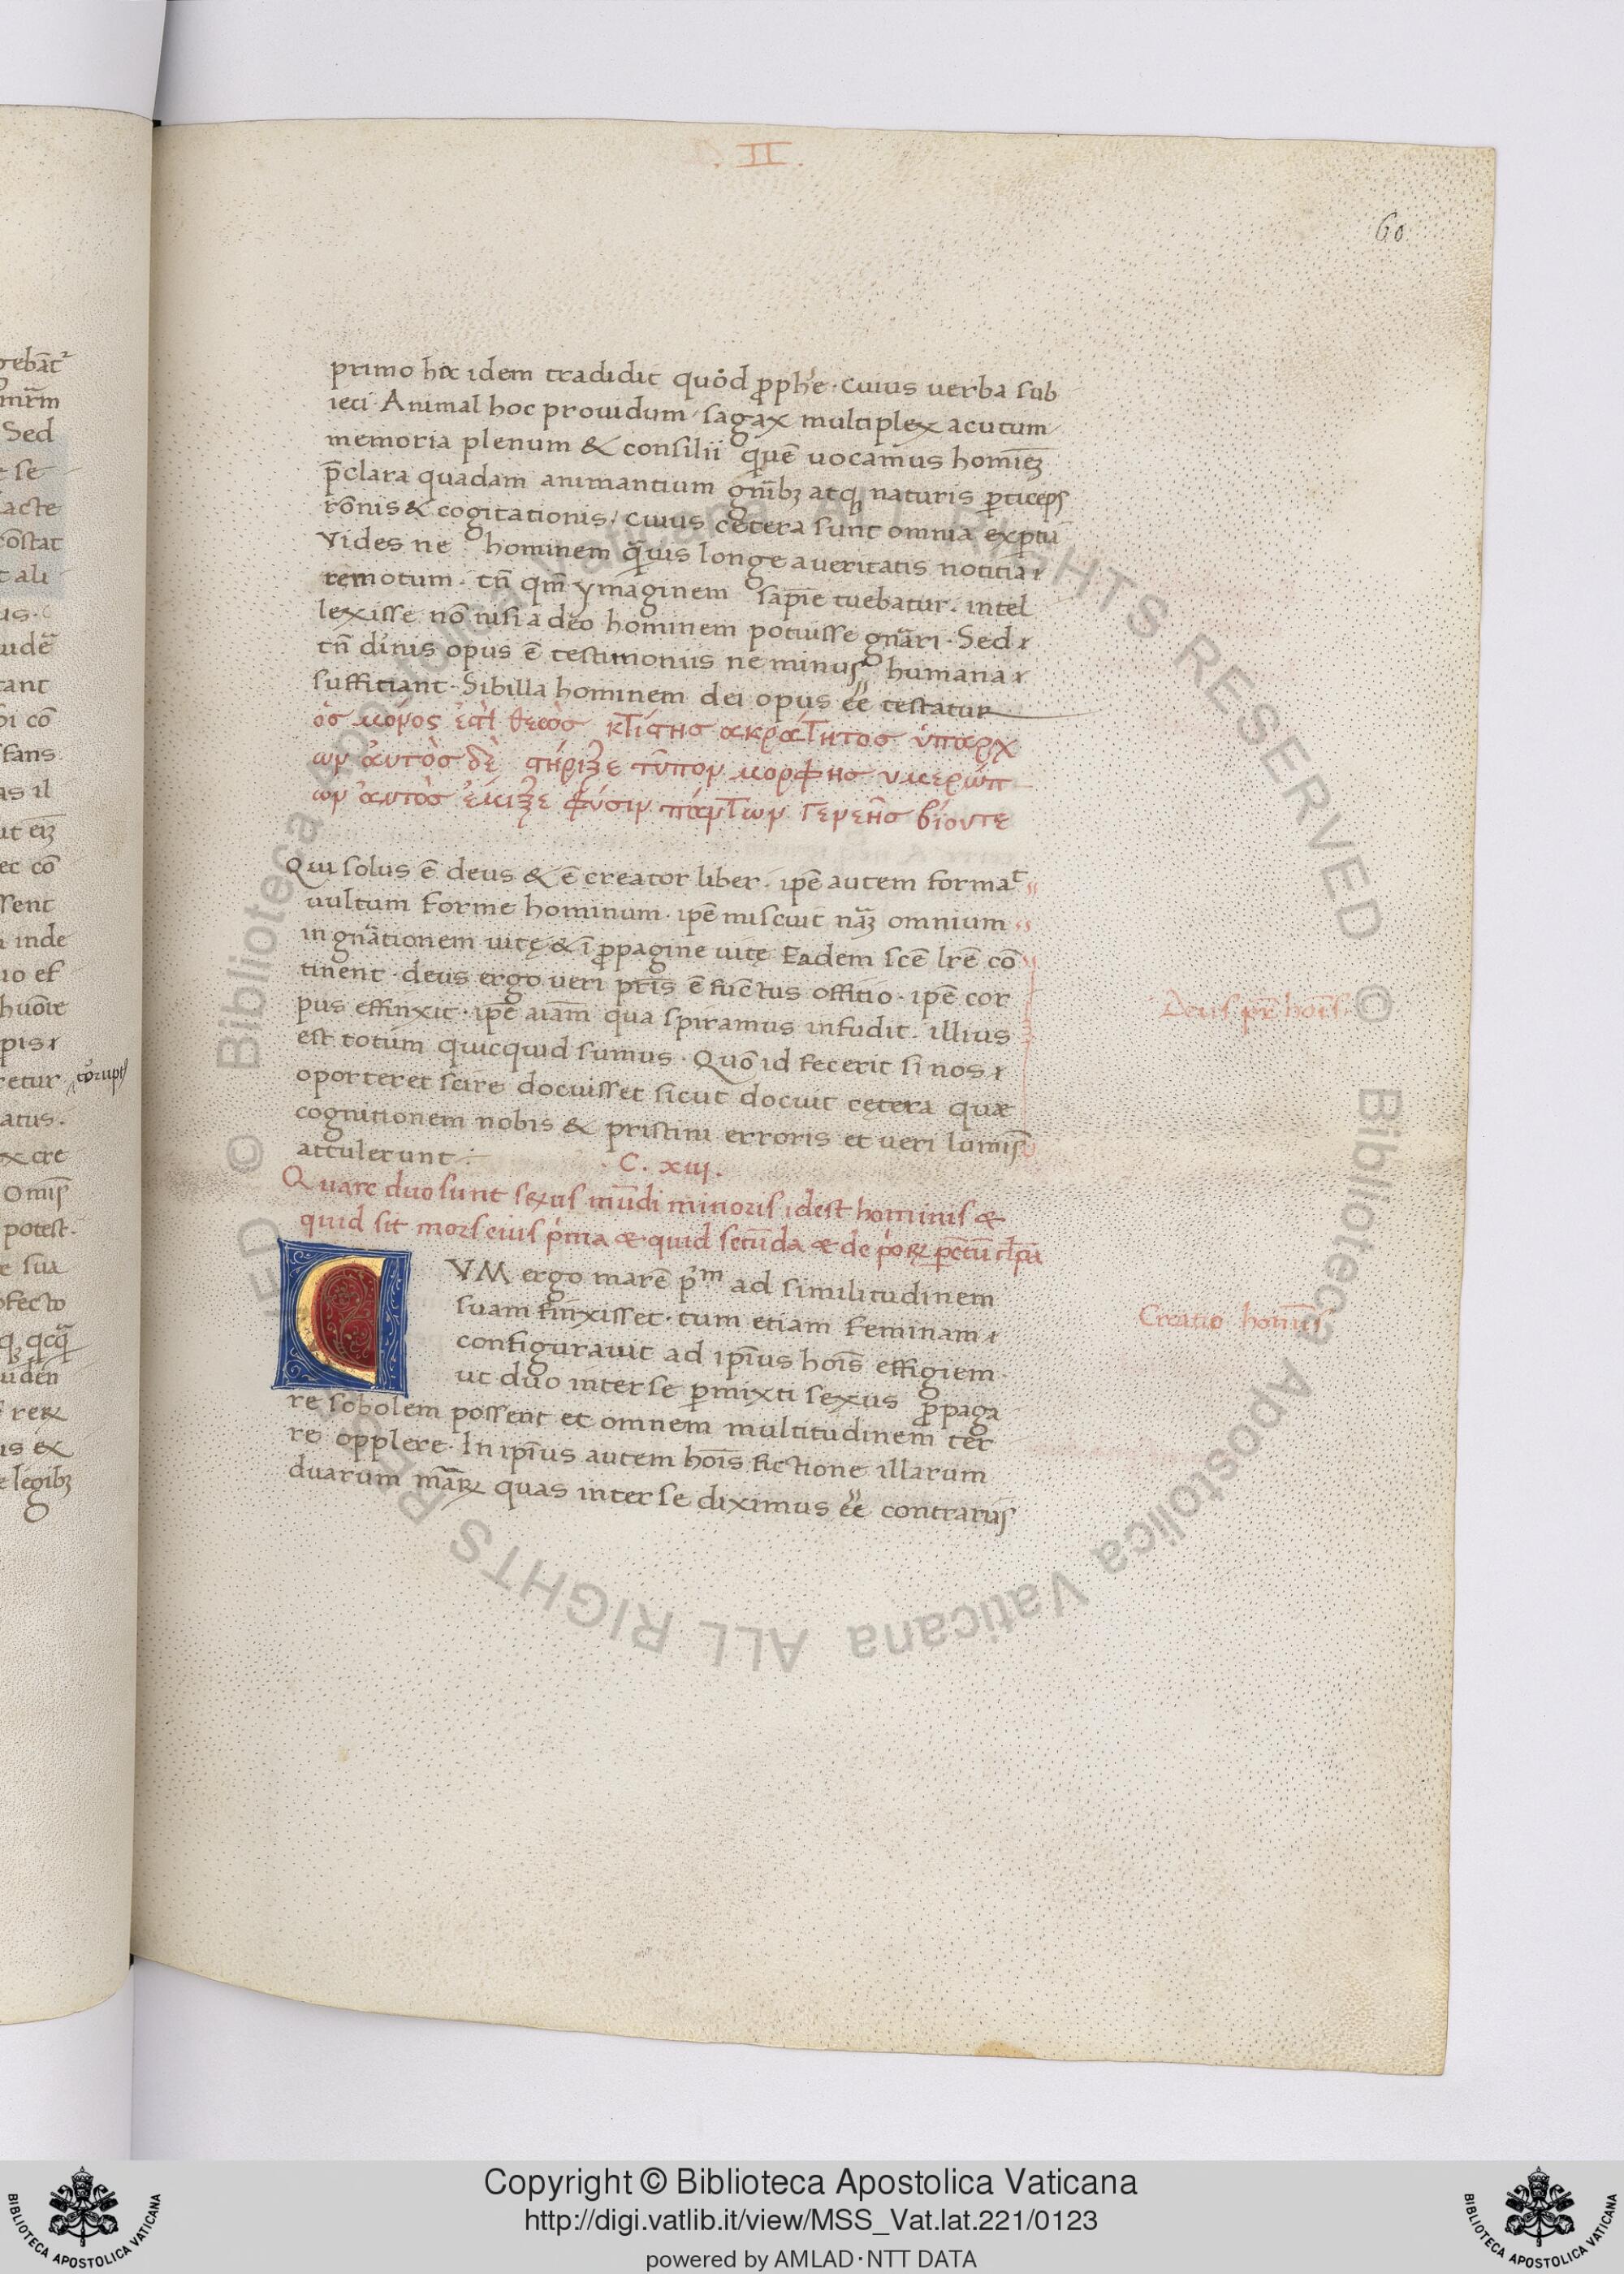 . II .
60
primo hic idem tradidit quod ꝓphe · cuius uerba sub
ieci · Animal hoc prouidum · sagax multiplex acutum
memoria plenum & consilii quē uocamus homiēꝫ
p̄clara quadam animantium gn̄ibꝫ atqꝫ naturis ꝑticeps
rōnis & cogitationis / cuius cętera sunt omnia exꝑtia
Vides ne hominem q̄uis longe a ueritatis notitia
remotum · tn̄ qm̄ ymaginem sapīe tuebatur · intel
lexisse nō nisi a deo hominem potuisse gnāri · Sed
tn̄ diuīnis opus ē testimoniis ne minus humana
suffitiant · Sibilla hominem dei opus eē testatur
ὁσ μόνος ἐστὶ θεωὸσ κτίστησ ακράτητοσ ὑπαρχ
ων ἀυτὸσ δὲ στήριξε τῦπον μορφησ υμερώπ
ων ἀυτὸσ ἔμιξε φύσιν πάντων γενεῆσ βίουτε
Qui solus ē deus & ē creator liber · ip̄e autem format
uultum forme hominum · ip̄e miscuit nāꝫ omnium
in gnātionem uitę & ī ꝓpagine uitę Eadem scē lr̄e cō
tinent · deus ergo ueri pr̄is ē functus offitio · ip̄e cor
pus effinxit · ip̄e aīam qua spiramus infudit · illius
est totum quicquid sumus · Quō id fecerit si nos
oporteret scire docuisset sicut docuit cętera quæ
cognitionem nobis & pristini erroris et ueri lumīs
attulerunt :
Deus pr̄ hoīs
· C · xiii ·
Quare duo sunt sexus mūdi minoris idest hominis &
quid sit mors eius p̓ma & quid secūda & de
CVM ergo marē p̓m ad similitudinem
suam finxisset · tum etiam feminam
configurauit ad ip̄ius hoīs effigiem
ut duo inter se ꝑmixti sexus ꝓpaga
re sobolem possent et omnem multitudinem ter
re opplere · In ip̄ius autem hoīs fictione illarum
duarum mār̄ꝝ quas inter se diximus eē contrariis
Creatio homīs
gebāt²
nr̄m
Sed
t se
acte
cōstat
t ali
us ·
uidē
tant
bi cō
fans
as il
ut eiꝫ
ec cō
ssent
inde
uo ef
ꝑis
retur corupt
atus ·
ex cre
Omīs
potest ·
e sua
ofecto
rerꝝ
us ex
e legibꝫ
© Biblioteca Apostolica Vaticana ALL RIGHTS RESERVED © Biblioteca Apostolica Vaticana ALL RIGHTS RESERVED
Copyright © Biblioteca Apostolica Vaticana
http://digi.vatlib.it/view/MSS_Vat.lat.221/0123
powered by AMLAD · NTT DATA
BIBLIOTECA APOSTOLICA VATICANA
BIBLIOTECA APOSTOLICA VATICANA